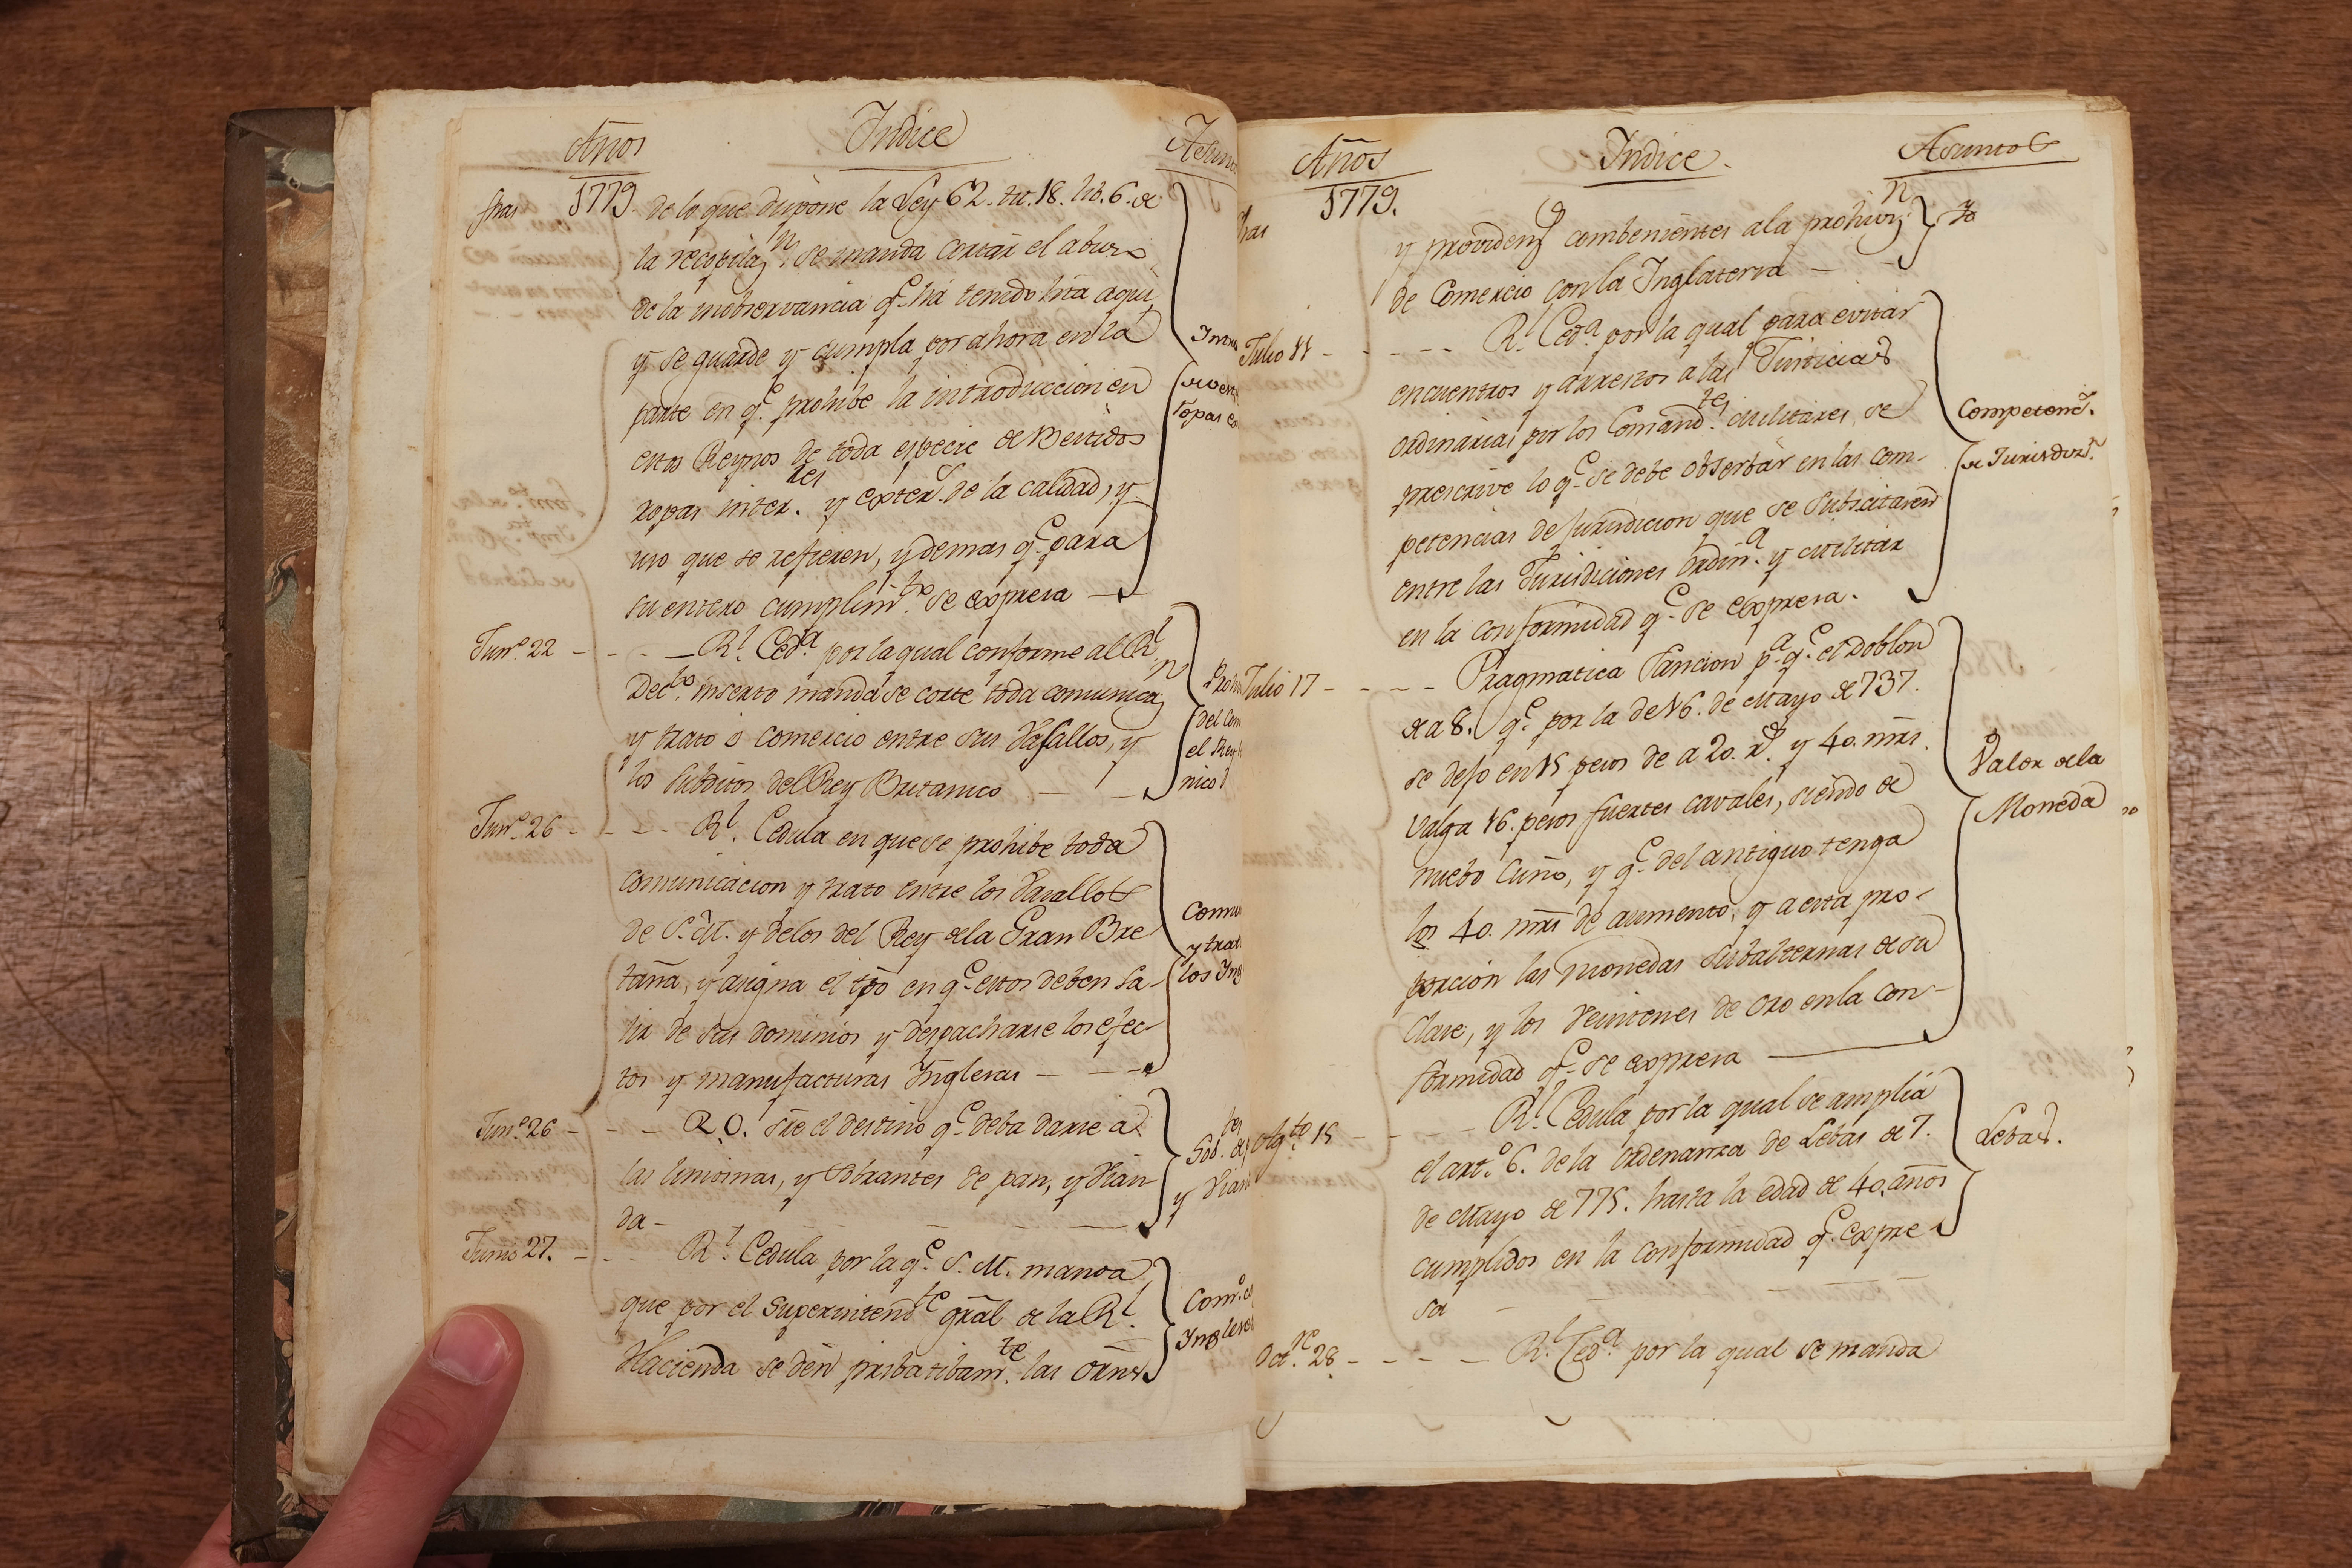 Años Indice Asun
1779. de lo que dispone la Ley 62. tit. 18. lib. 6. de
la recopilaz.n se manda cortar el abuso
de la inobservancia q.e há tenido hta aqui,
y se guarde y cumpla por ahora en la
parte en q.e prohibe la introduccion en
estos Reynos de toda especie de Bestidos
ropas inter.res y exter.s de la calidad, y
uso que se refieren, y demas q.e para
su entero cumplim.to se expresa —
Jun.o 22 - - - — R.l Ced.a por la qual conforme al R.l
Dec.to inserto manda se corte toda comunicaz.n
y trato ó comercio entre sus Vasallos, y
los subditos del Rey Britanico —
Jun.o 26 - - - - R.l Cedula en que se prohibe toda
comunicacion y trato entre los Vasallos
de S. M. y delos del Rey dela Gran Bre
taña, y asigna el tpo en q.e estos deben sa-
lir de sus dominios y despacharse los efec-
tos y manufacturas Inglesas - - -
Jun.o 26 - - - R.O. sre el destino q.e deba darse á
las limosnas, y sobrantes de pan, y Vian
da -
Junio 27. - - R.l Cedula por la q.e S. M. manda
que por el Superintend.te gral de la R.l
Hacienda se dén pribatibam.te las ôrns
Años Indice. Asuntos
1779.
y providenz.s combenientes ala prohiviz.n } Yo
de Comercio con la Inglaterra —
Julio 11 - - - - - R.l Ced.a por la qual para evitar
encuentros y arrestos a las Justicias
ordinarias por los Comand.tes militares, se
prescrive lo q.e se debe observar en las com-
petencias de jurisdicion que se subscitaren
entre las Jurisdiciones Ordin.a y militar
en la conformidad q.e se expresa.
Competenz.s
de Jurisdiz.n
Julio 17 - - - - Pragmatica Sancion p.a q.e el Doblon
de a 8. q.e por la de 16. de Mayo de 737.
se dejo en 15 pesos de a 20. r.s y 40. mrs.
valga 16. pesos fuertes cavales, siendo de
nuebo cuño, y q.e del antiguo tenga
los 40. mrs de aumento, y a esta pro-
porcion las monedas subalternas de su
clase, y los veintenes de oro en la con-
formidad q.e se expresa —
Valor dela
Moneda
Ag.to 15 - - - R.l Cedula por la qual se amplia
el art.o 6. de la ordenanza de Lebas de 7.
de Mayo de 775. hasta la edad de 40. años
cumplidos en la conformidad q.e expre
sa
Lebas.
Oct.re 28 - - - - R.l Ced.a por la qual se manda